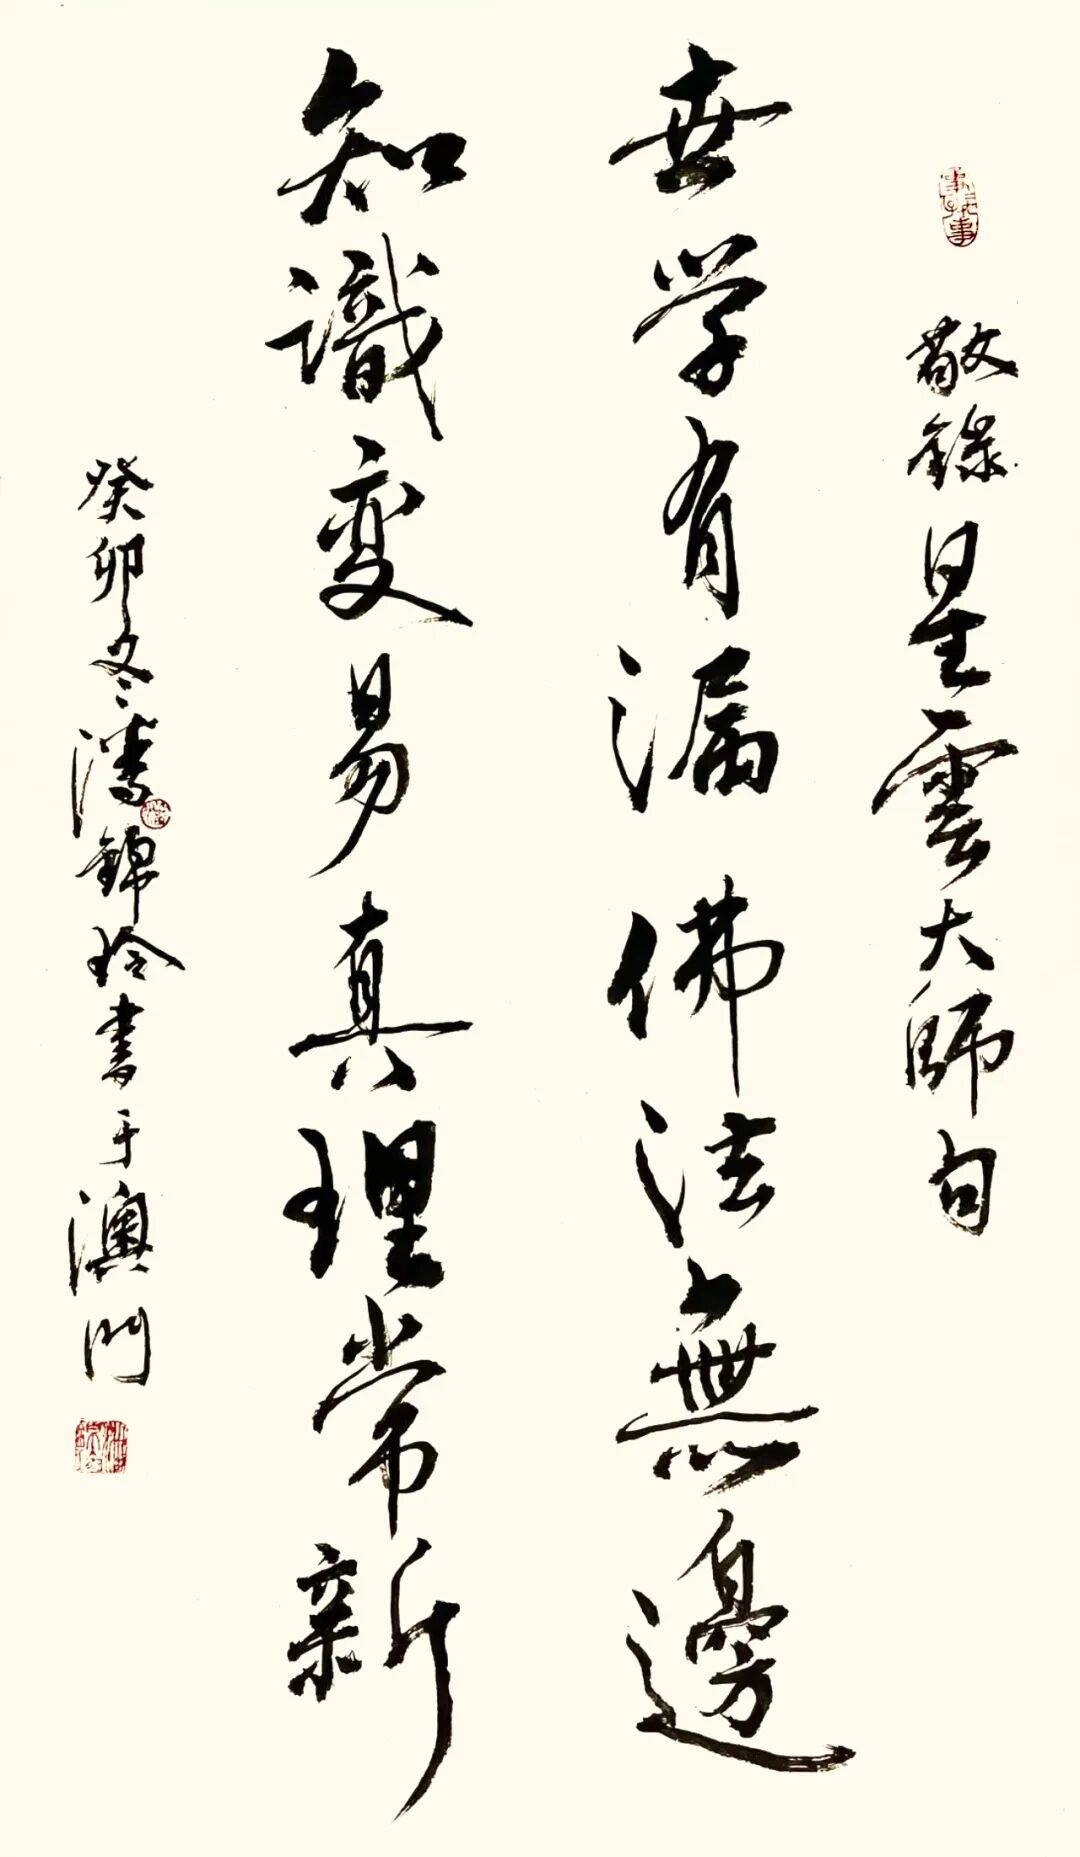 敬錄星雲大師句
世学有漏佛法無邊
知識变易真理常新
癸卯冬潘錦玲書于澳門